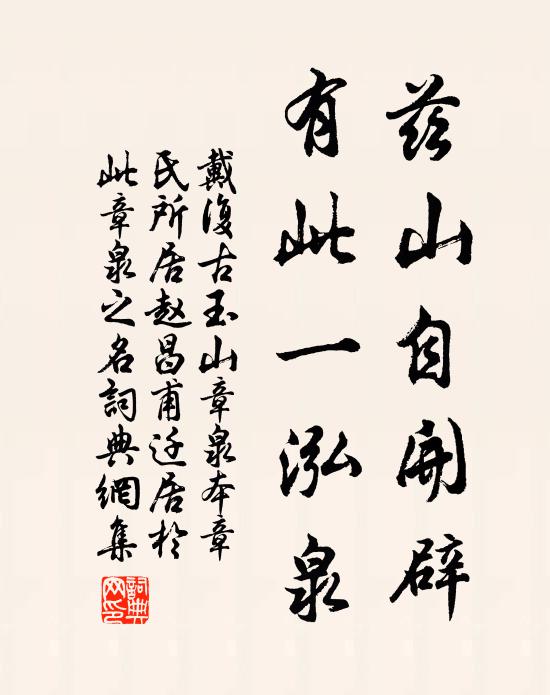 茲山自開辟
有此一泓泉
戴復古玉山章泉本章
氏所居趙昌甫迁居於
此章泉之名詞典網集
詞典網印